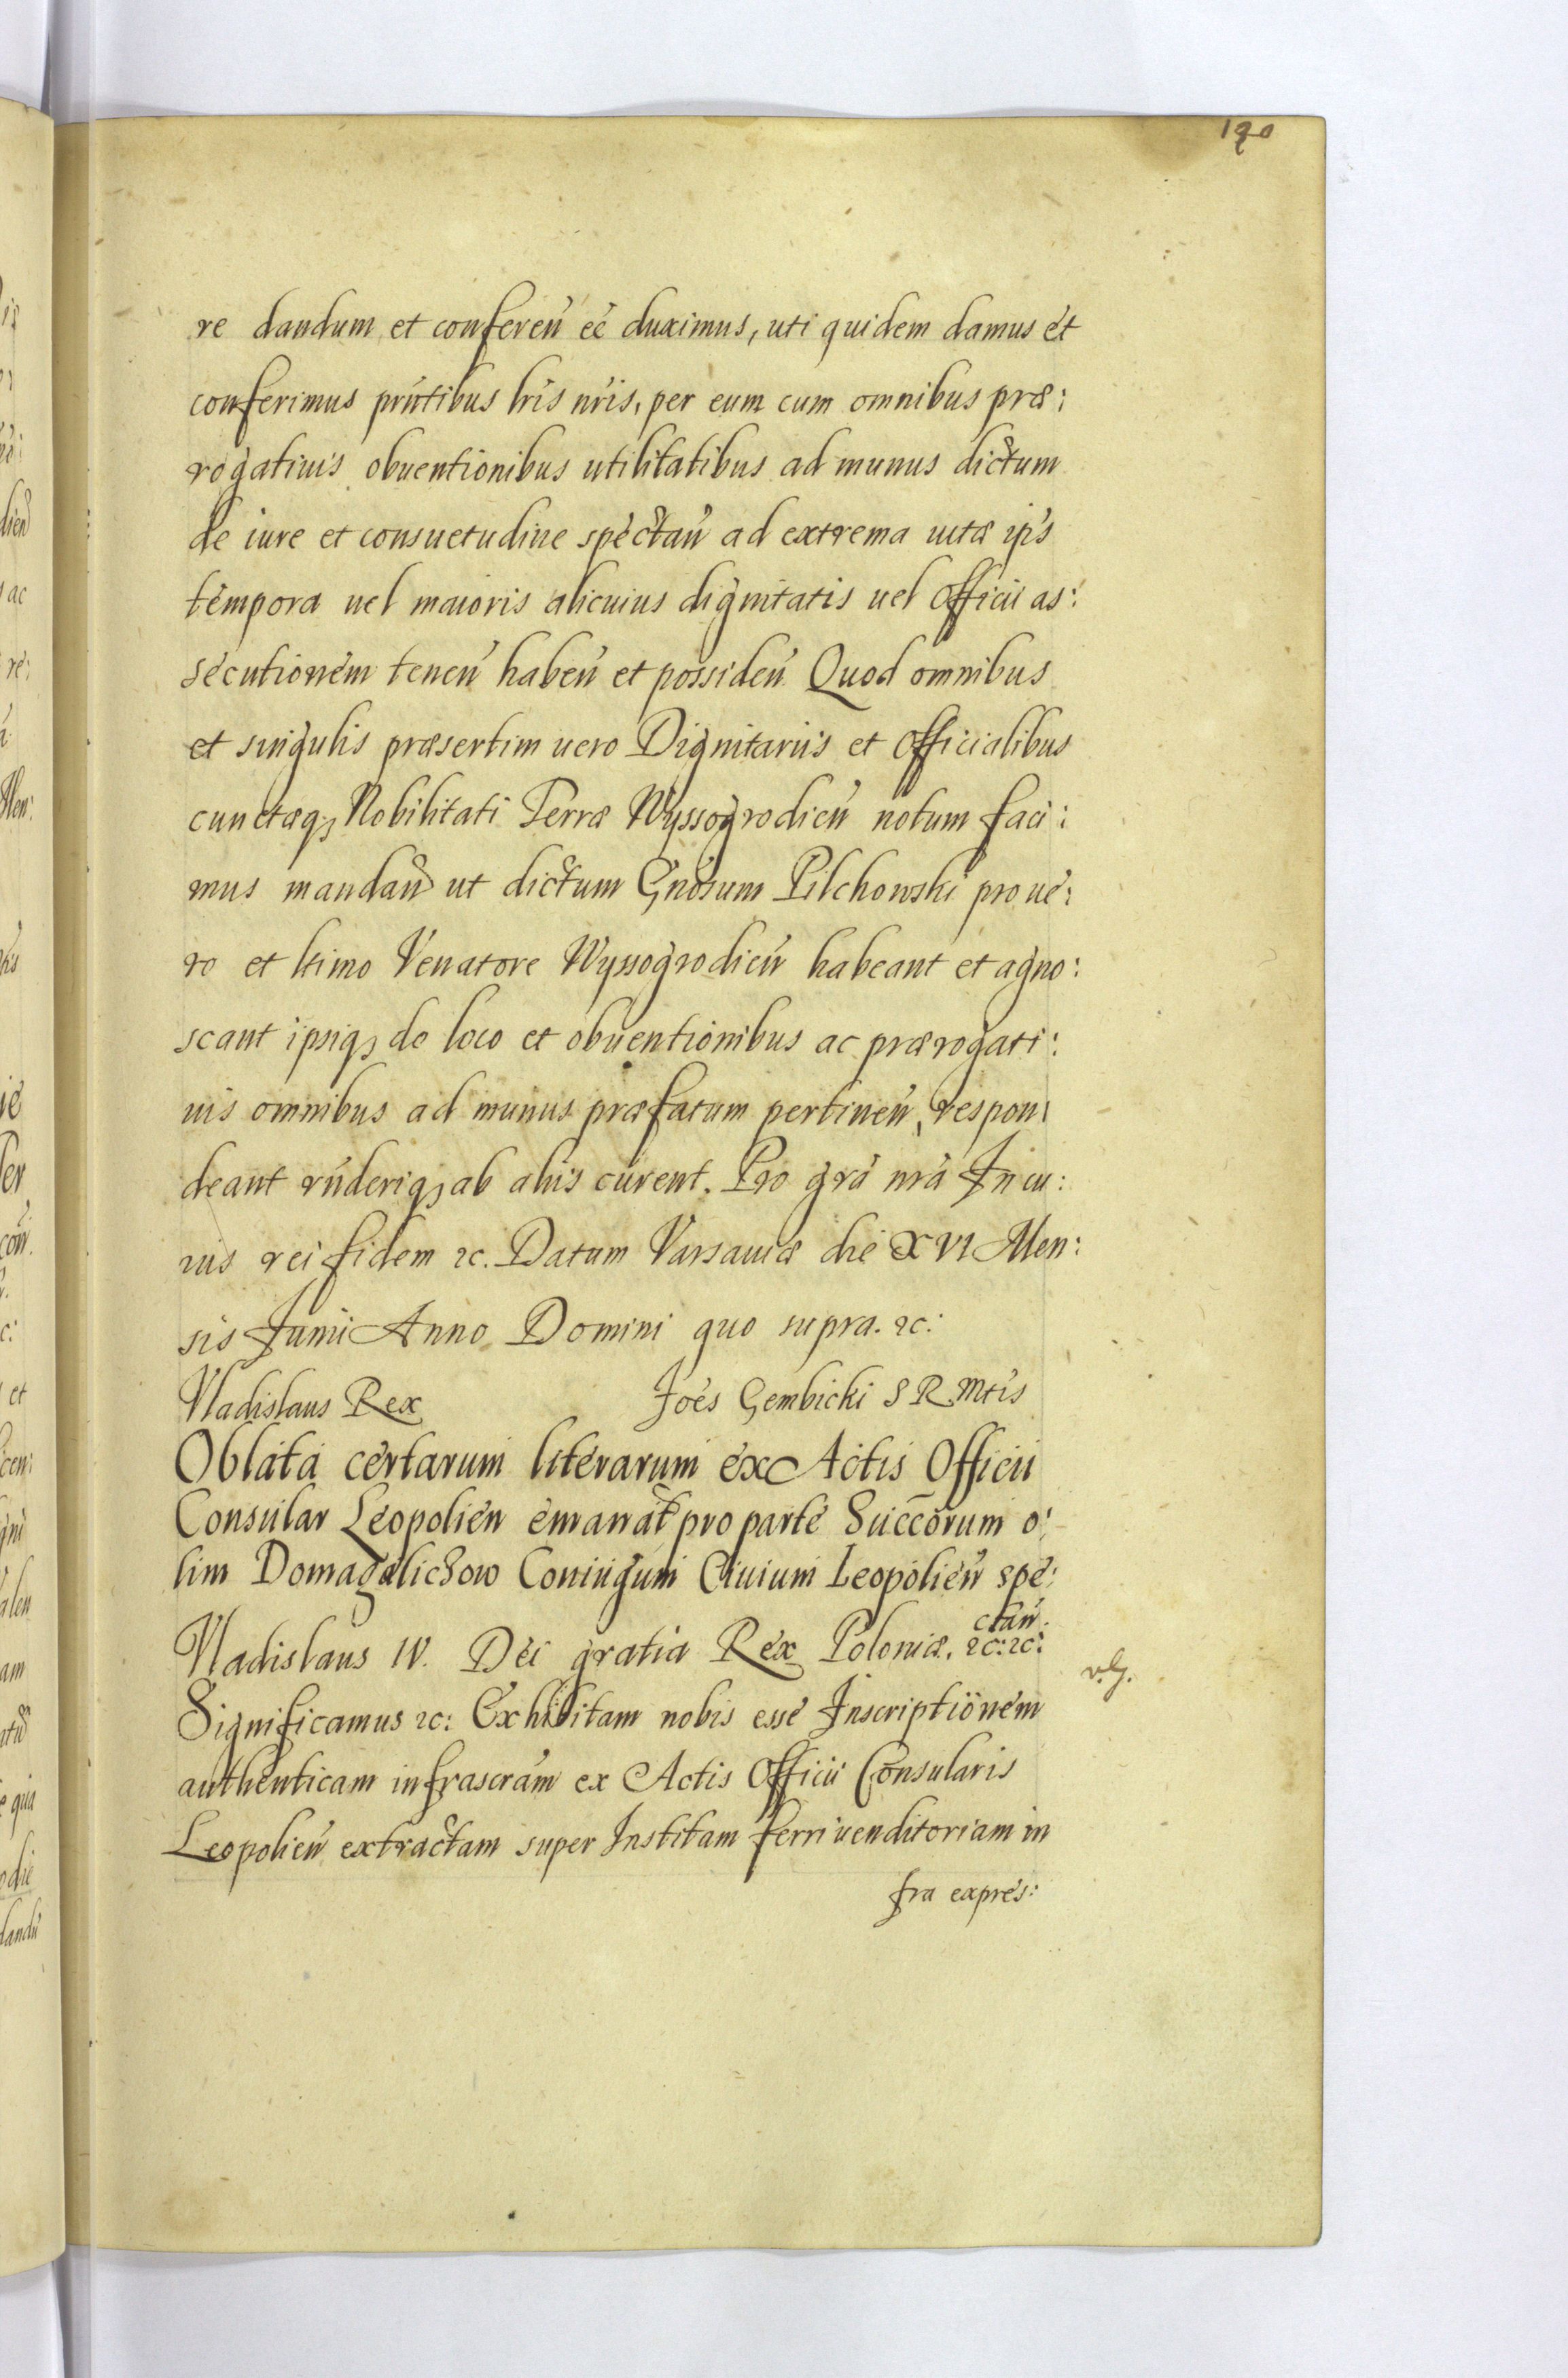 190
re dandum et conferen̄ eē duximus, uti quidem damus et
conferimus prn̄tibus lr̄is nr̄is, per eum cum omnibus præ:
rogatiuis obuentionibus utilitatibus ad munus dictum
de iure et consuetudine spectan̄ ad extrema uitæ ip̄s
tempora uel maioris alicuius dignitatis uel Officii as:
secutionem tenen̄ haben̄ et possiden̄ Quod omnibus
et singulis præsertim uero Dignitariis et Officialibus
cunctæq₃ Nobilitati Terræ Wyssogrodien̄ notum faci:
mus mandan̄ ut dictum Gn̄osum Pilchowski pro ue:
ro et ltimo Venatore Wyssogrodien̄ habeant et agno:
scant ipsiq₃ de loco et obuentionibus ac prærogati:
uis omnibus ad munus præfatum pertinen̄, respon:
deant rn̄deriq₃ ab aliis curent. Pro gr̄a nr̄a In cu:
ius rei fidem ꝛc. Datum Varsauiæ die XVI Men:
sis Junii Anno Domini quo supra. ꝛc:
Vladislaus Rex Joēs Gembicki S R Mtis
Oblata certarum literarum ex Actis Officii
Consular Leopolien emanat pro parte Succ̄orum o:
lim Domagalichow Coniugum Ciuium Leopolien̄ spe:
ctan̄.
Vladislaus IV. Dei gratia Rex Poloniæ. ꝛc: ꝛc:
Significamus ꝛc: Exhibitam nobis esse Inscriptionem
authenticam infrascr̄am ex Actis Officii Consularis
Leopolien̄ extractam super Institam ferriuenditoriam in
fra expres: